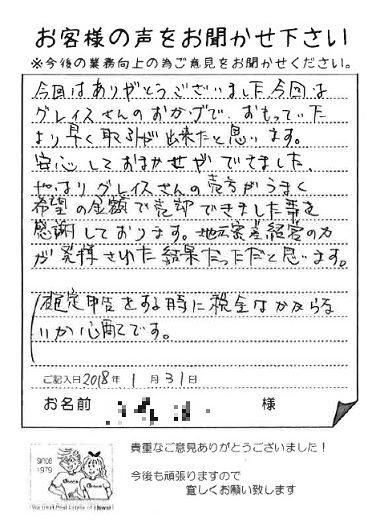 お客様の声をお聞かせ下さい
※今後の業務向上の為ご意見をお聞かせください。
今回はありがとうございました今回は
グレイスさんのおかげで、おもっていた
より早く取引が出来たと思います。
安心しておまかせができました、
やはりグレイスさんの売方がうまく
希望の金額で売却できました事を
感謝しております。地元密差経営の力
が発揮された結果だっただと思います。
確定申告をする時に税金はかからな
いか心配です。
ご記入日2018年 1月31日
お名前 様
since
1979
貴重なご意見ありがとうございました！
今後も頑張りますので
宜しくお願い致します